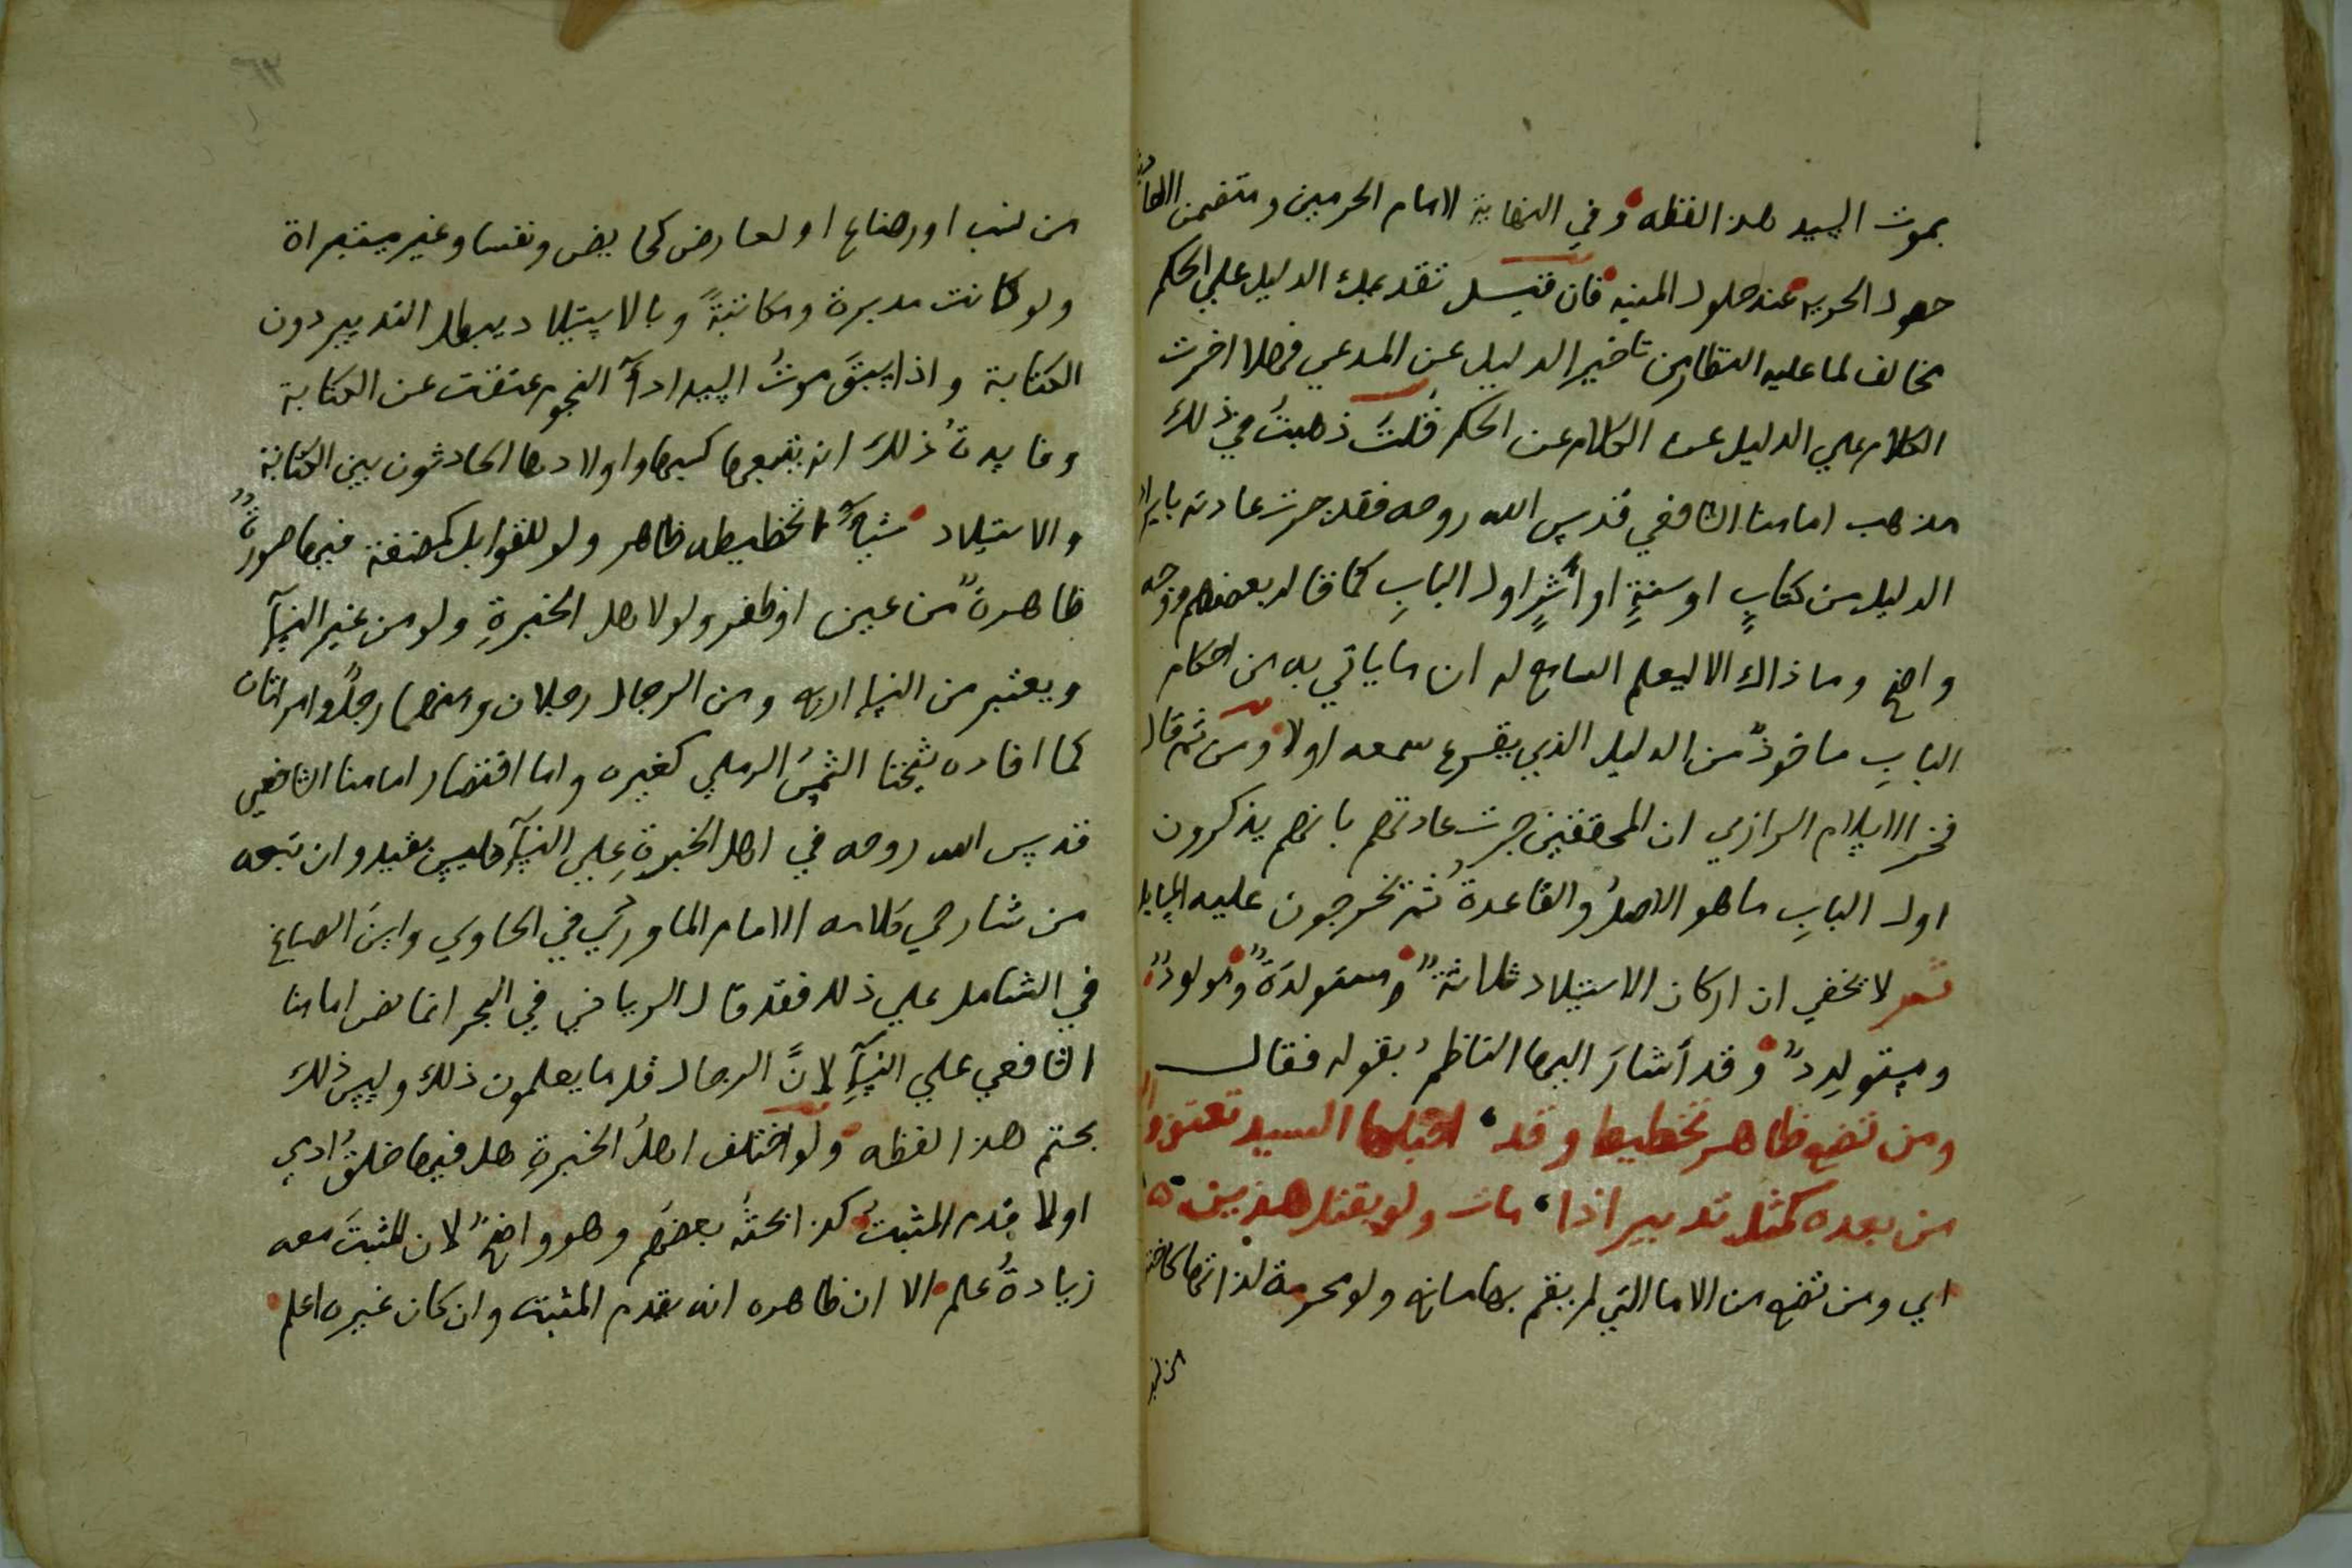 بموت السيد هذا لفظه وفي النهاية لامام الحرمين ومتضمن
حصول الحريه عند حلول المنيه فان قيل تقديمك الدليل علي الحكم
مخالف لما عليه النظار من تاخير الدليل عن المدعي فهلا اخرت
الكلام علي الدليل عن الكلام عن الحكم قُلتُ ذهبتُ في ذلك
مذهب امامنا الشافعي قدس الله روحه فقد جرت عادته بايراد
الدليل من كتابٍ او سنةٍ او اثرٍ اول البابِ كما قاله بعضهم ووجهه
واضح وما ذاك الا ليعلم السامع له ان ما ياتي به من احكام
البابِ ماخوذٌ من الدليل الذي يقرع سمعه اولا ومن ثم قال
فخر الاسلام الرازي ان المحققين جرت عادتهم بانهم يذكرون
اول البابِ ما هو الاصلُ والقاعدةُ ثم يخرجون عليه المسايل
ثم لا يخفي ان اركان الاستيلاد ثلاثةٌ مستولدَةٌ ومولودٌ
ومستولِدٌ وقد أشارَ اليها الناظمُ بقوله فقال
ومن تضع ظاهر تخطيط وقد احبلها السيد تعتق
من بعده كمثل تدبير اذا مات ولو بقتل هذين
اي ومن تضع من الاما التي لم يقم بها مانع ولو محرمة لذاتها كاخته
من نسب
من نسب او رضاع او لعارض كحايض ونفسا وغير مستبراة
ولو كانت مدبرة ومكاتبةً وبالاستيلاد يبطل التدبير دون
الكتابة واذا سبقَ موتُ السيد اداءَ النجوم عتقت عن الكتابة
وفايدةُ ذلك انه يتبعها كسبها واولادها الحادثون بين الكتابة
والاستيلاد شيأً تخطيطه ظاهر ولو للقوابل كمضغة فيها صورةٌ
ظاهرةٌ من عين او ظفر ولو لاهل الخبرةِ ولو من غير النسآءِ
ويعتبر من النسا اربع ومن الرجال رجلان ومنهما رجلٌ وامراتان
كما افاده شيخنا الشمسُ الرملي كغيره واما اقتصار امامنا الشافعي
قدس الله روحه في اهل الخبرةِ علي النسآءِ فليس بقيد وان تبعه
من شارحي كلامه الامام الماورديُ في الحاوي وابنُ الصباغ
في الشامل علي ذلك فقد قال الروياني في البحر انما نص امامنا
الشافعي علي النسآءِ لانَّ الرجال قل ما يعلمون ذلك وليس ذلك
بحتم هذا لفظه ولو اختلف اهلُ الخبرةِ هل فيها خلقُ ادمي
اولا قدم المثبتُ كذا بحثهُ بعضهم وهو واضحٌ لان المثبتَ معه
زيادةُ علم الا ان ظاهره انه يقدم المثبت وان كان غيره اعلم